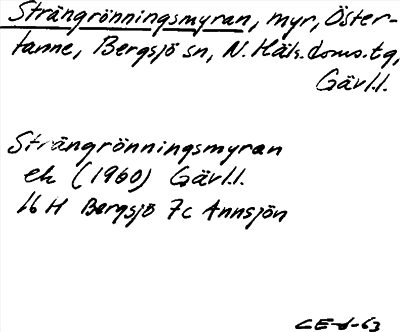 Strängrönningsmyran, myr, Öster-
tanne, Bergsjö sn, N. Häls. doms.tg,
Gävl.l.
Strängrönningsmyran
ek (1960) Gävl.l.
16 H Bergsjö 7c Annsjön
CE-6-63